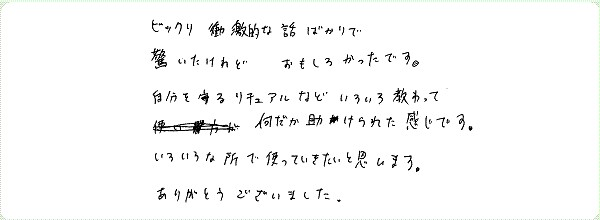 ビックリ 働激的な話ばかりで
驚いたけれど おもしろかったです。
自分を守るリチュアルなどいろいろ教わって
何だか助けられた感じです。
いろいろな所で使っていきたいと思います。
ありがとうございました。